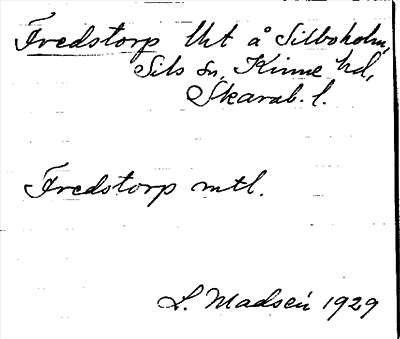 Fredstorp lht å Silboholm,
Sils sn, Kinne hd,
Skarab. l.
Fredstorp mtl.
L. Madsén 1929